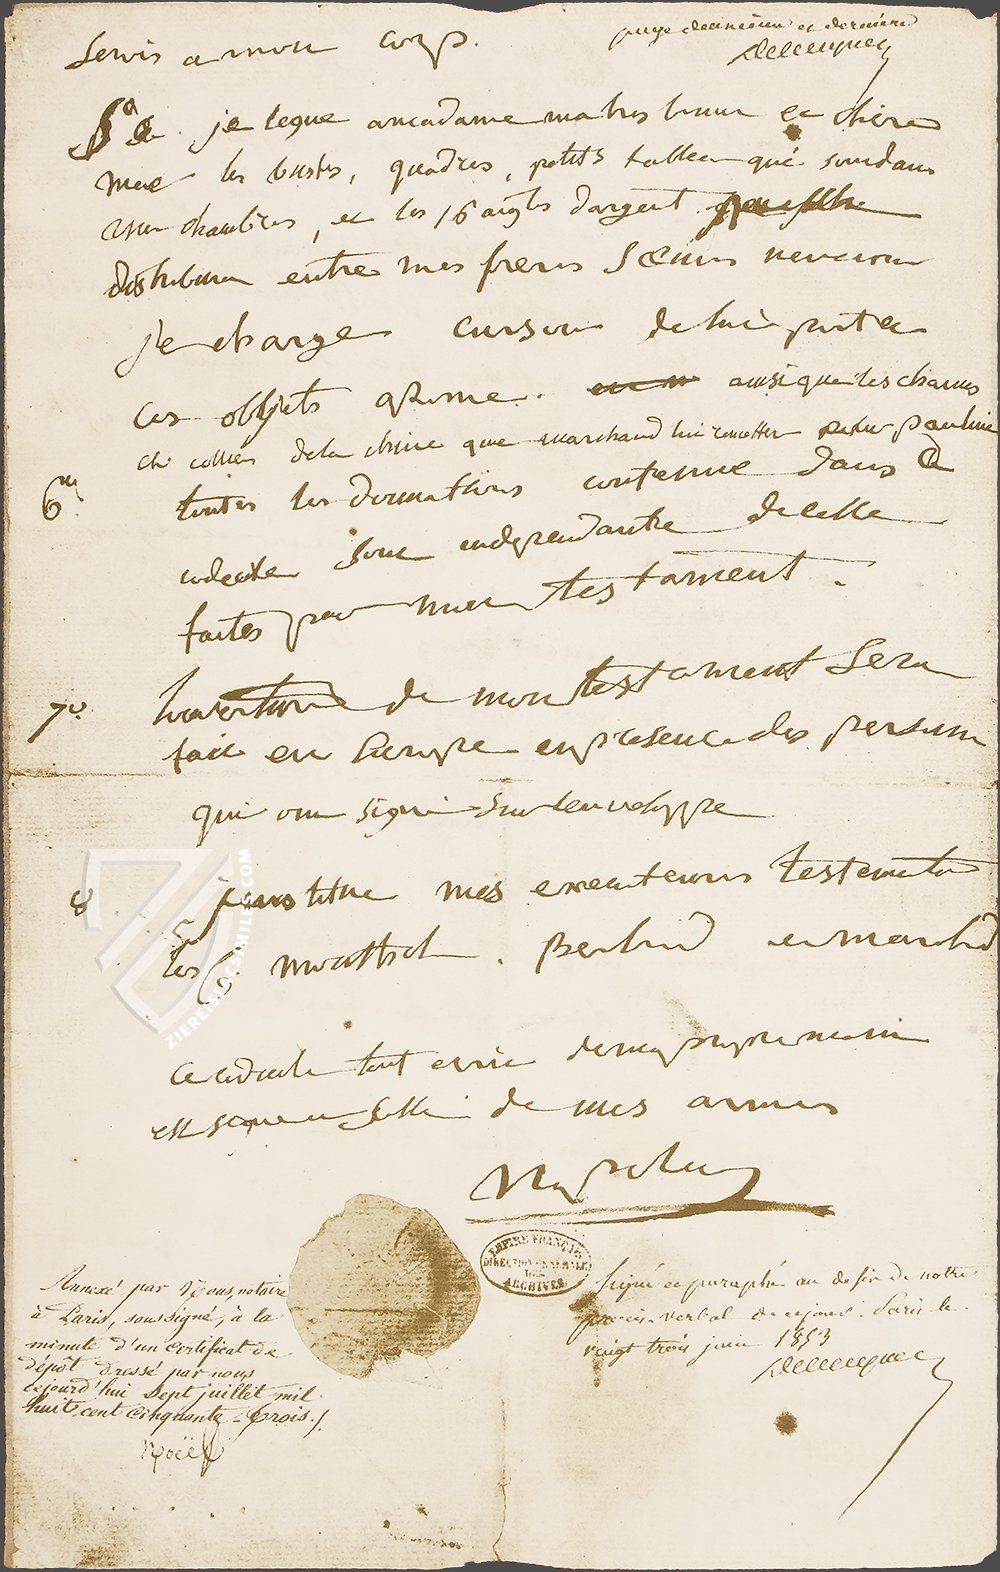 servis a mon corps.
page deuxieme et derniere
5° je legue a madame ma tres bonne et chere
mere les bustes, quadres, petits tableau qui sondans
mes chambres, et les 16 aigles d'argent
distribura entre mes freres Soeurs neveux
je charge cursou de lui porter
ces objets a Rome. ainsi que les chaines
et colliers de la chine que marchand lui remettra pour pauline
6° toutes les donnations contenue dans ce
codecile sont independante de celle
faites par mon testament.
7° louverture de mon testament sera
fait en Europe en presence des personne
qui ont signé sur lenveloppe
8 j'institue mes executeurs testamentaires
les C. montholon. Bertrand et marchand
ce codicile tout ecrit de ma propre main
est signé et scellé de mes armes
Napoleon
EMPIRE FRANÇAIS
DIRECTION GENERALE
DES
ARCHIVES
Annexé par Nous, notaire
à Paris, soussigné, à la
minute d'un certificat de
dépôt dressé par nous
cejourd'hui sept juillet mil
huit cent cinquante-trois./
Noël
Signé et paraphé au desir de notre
procès-verbal de ce jour. Paris le
vingt trois juin 1853
ZIEREISFACSIMILES.COM